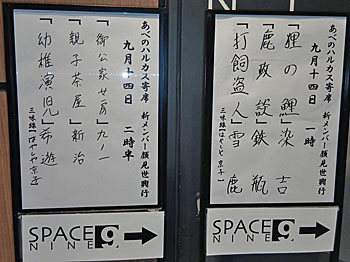 あべのハルカス寄席 新メンバー顔見世興行
九月十四日 一時
「狸の鯉」染吉
「鹿政談」鉄瓶
「打飼盗人」雪鹿
三味線【はやしや京子】
SPACE
NINE 9.
あべのハルカス寄席 新メンバー顔見世興行
九月十四日 二時半
「御公家女房」九ノ一
「親子茶屋」新治
「幼稚演児」希遊
三味線【はやしや京子】
SPACE
NINE 9.